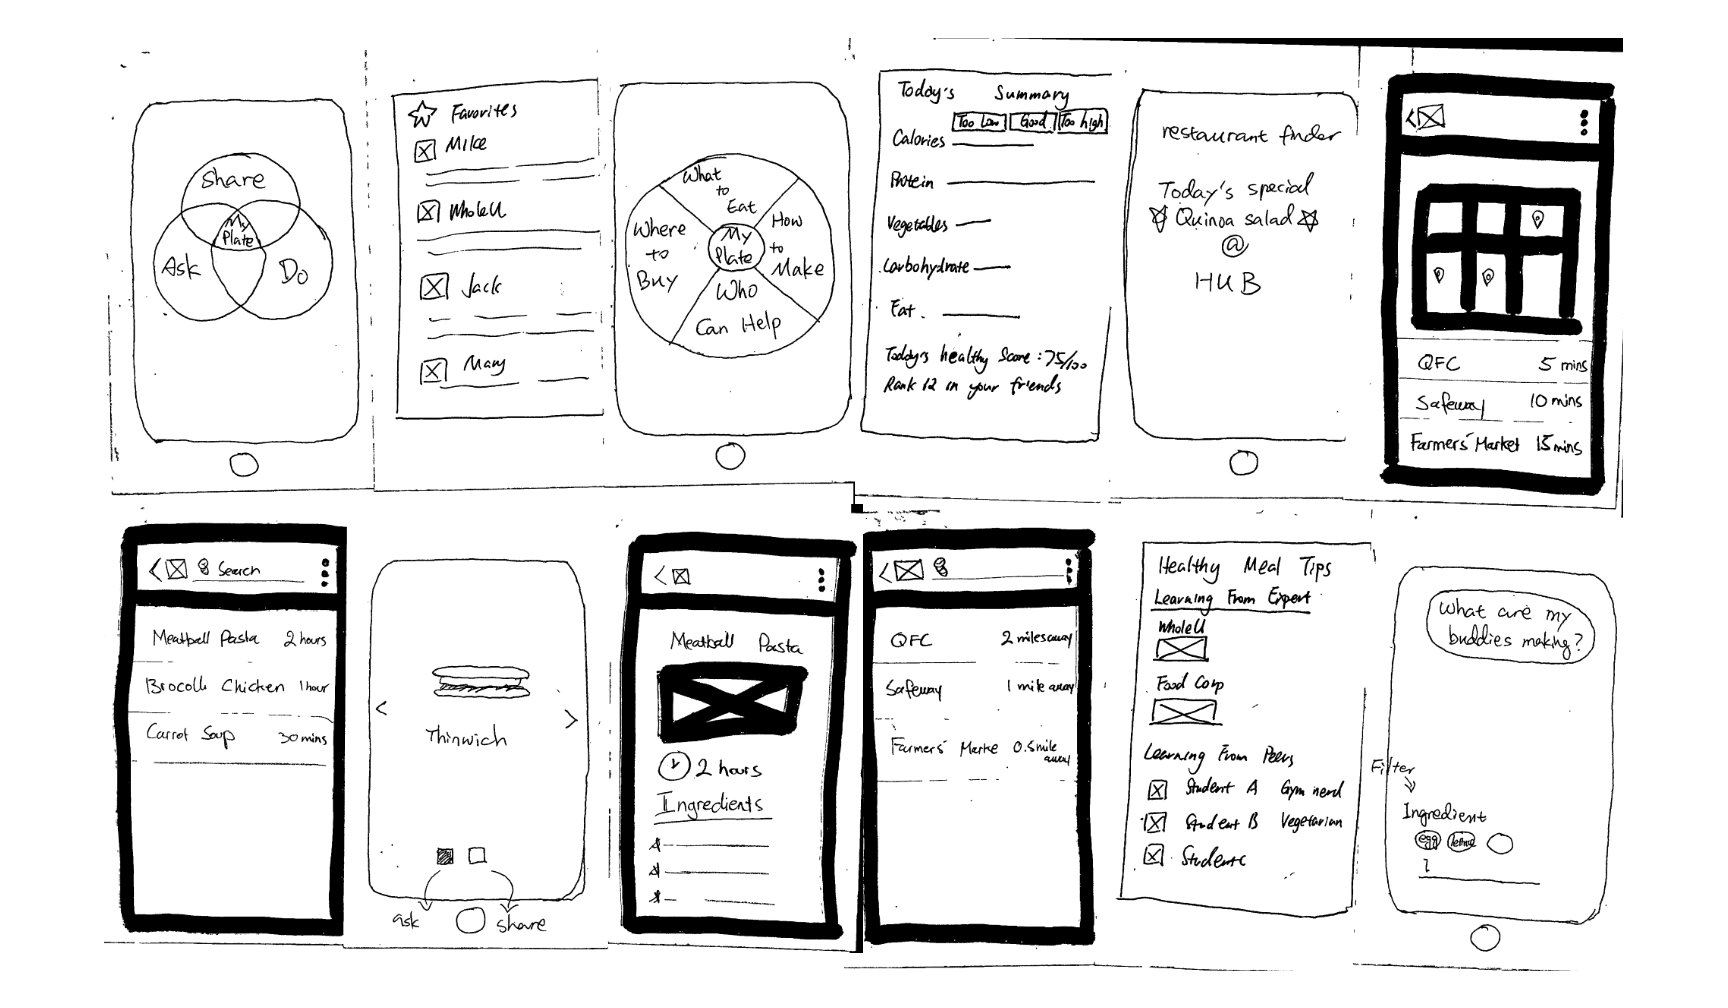 Share
My
Plate
Ask
Do
Favorites
Mike
WholeU
Jack
Mary
What
to
Eat
Where
to
Buy
My
Plate
How
to
Make
Who
Can Help
Today's Summary
Too Low Good Too high
Calories
Protein
Vegetables
Carbohydrate
Fat
Today's healthy Score: 75/100
Rank 12 in your friends
restaurant finder
Today's special
Quinoa salad
@
HUB
<
QFC 5 mins
Safeway 10 mins
Farmers' Market 15 mins
< Search
Meatball Pasta 2 hours
Brocolli Chicken 1 hour
Carrot Soup 30 mins
< >
Thinwich
ask share
<
Meatball Pasta
2 hours
Ingredients
<
QFC 2 miles away
Safeway 1 mile away
Farmers' Marke 0.5 mile
away
Healthy Meal Tips
Learning From Expert
WholeU
Food Corp
Learning From Peers
Student A Gym nerd
Student B Vegetarian
Student C
What are my
buddies making?
Filter
Ingredient
egg lettuce